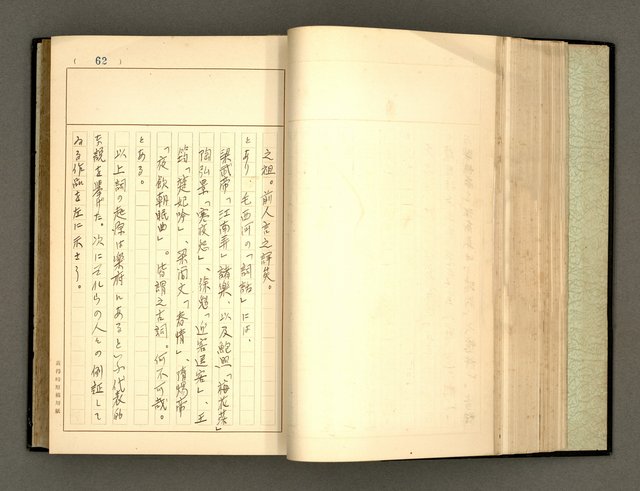 ( 62 )
之祖。前人言之詳矣。
とあり、毛西河の「詞話」には、
梁武帝「江南弄」諸樂、以及鮑照「梅花落」
陶弘景「寒夜怨」、徐勉「迎客送客」、王
筠「楚妃吟」、梁簡文「春情」、隋煬帝
「夜飲朝眠曲」。皆謂之古詞。何不可哉。
とある。
以上詞の起源は樂府にあるといふ代表的
な説を擧げた。次にそれらの人々の例証して
ゐる作品を左に示さう。
黃得時原稿用紙